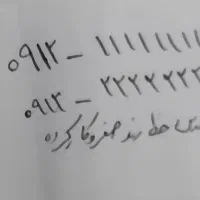 ۰۹۱۲ - ۱۱۱۱۱۱۱
۰۹۱۲ - ۲۲۲۲۲۲۲
خط رند صفر و کارکرده